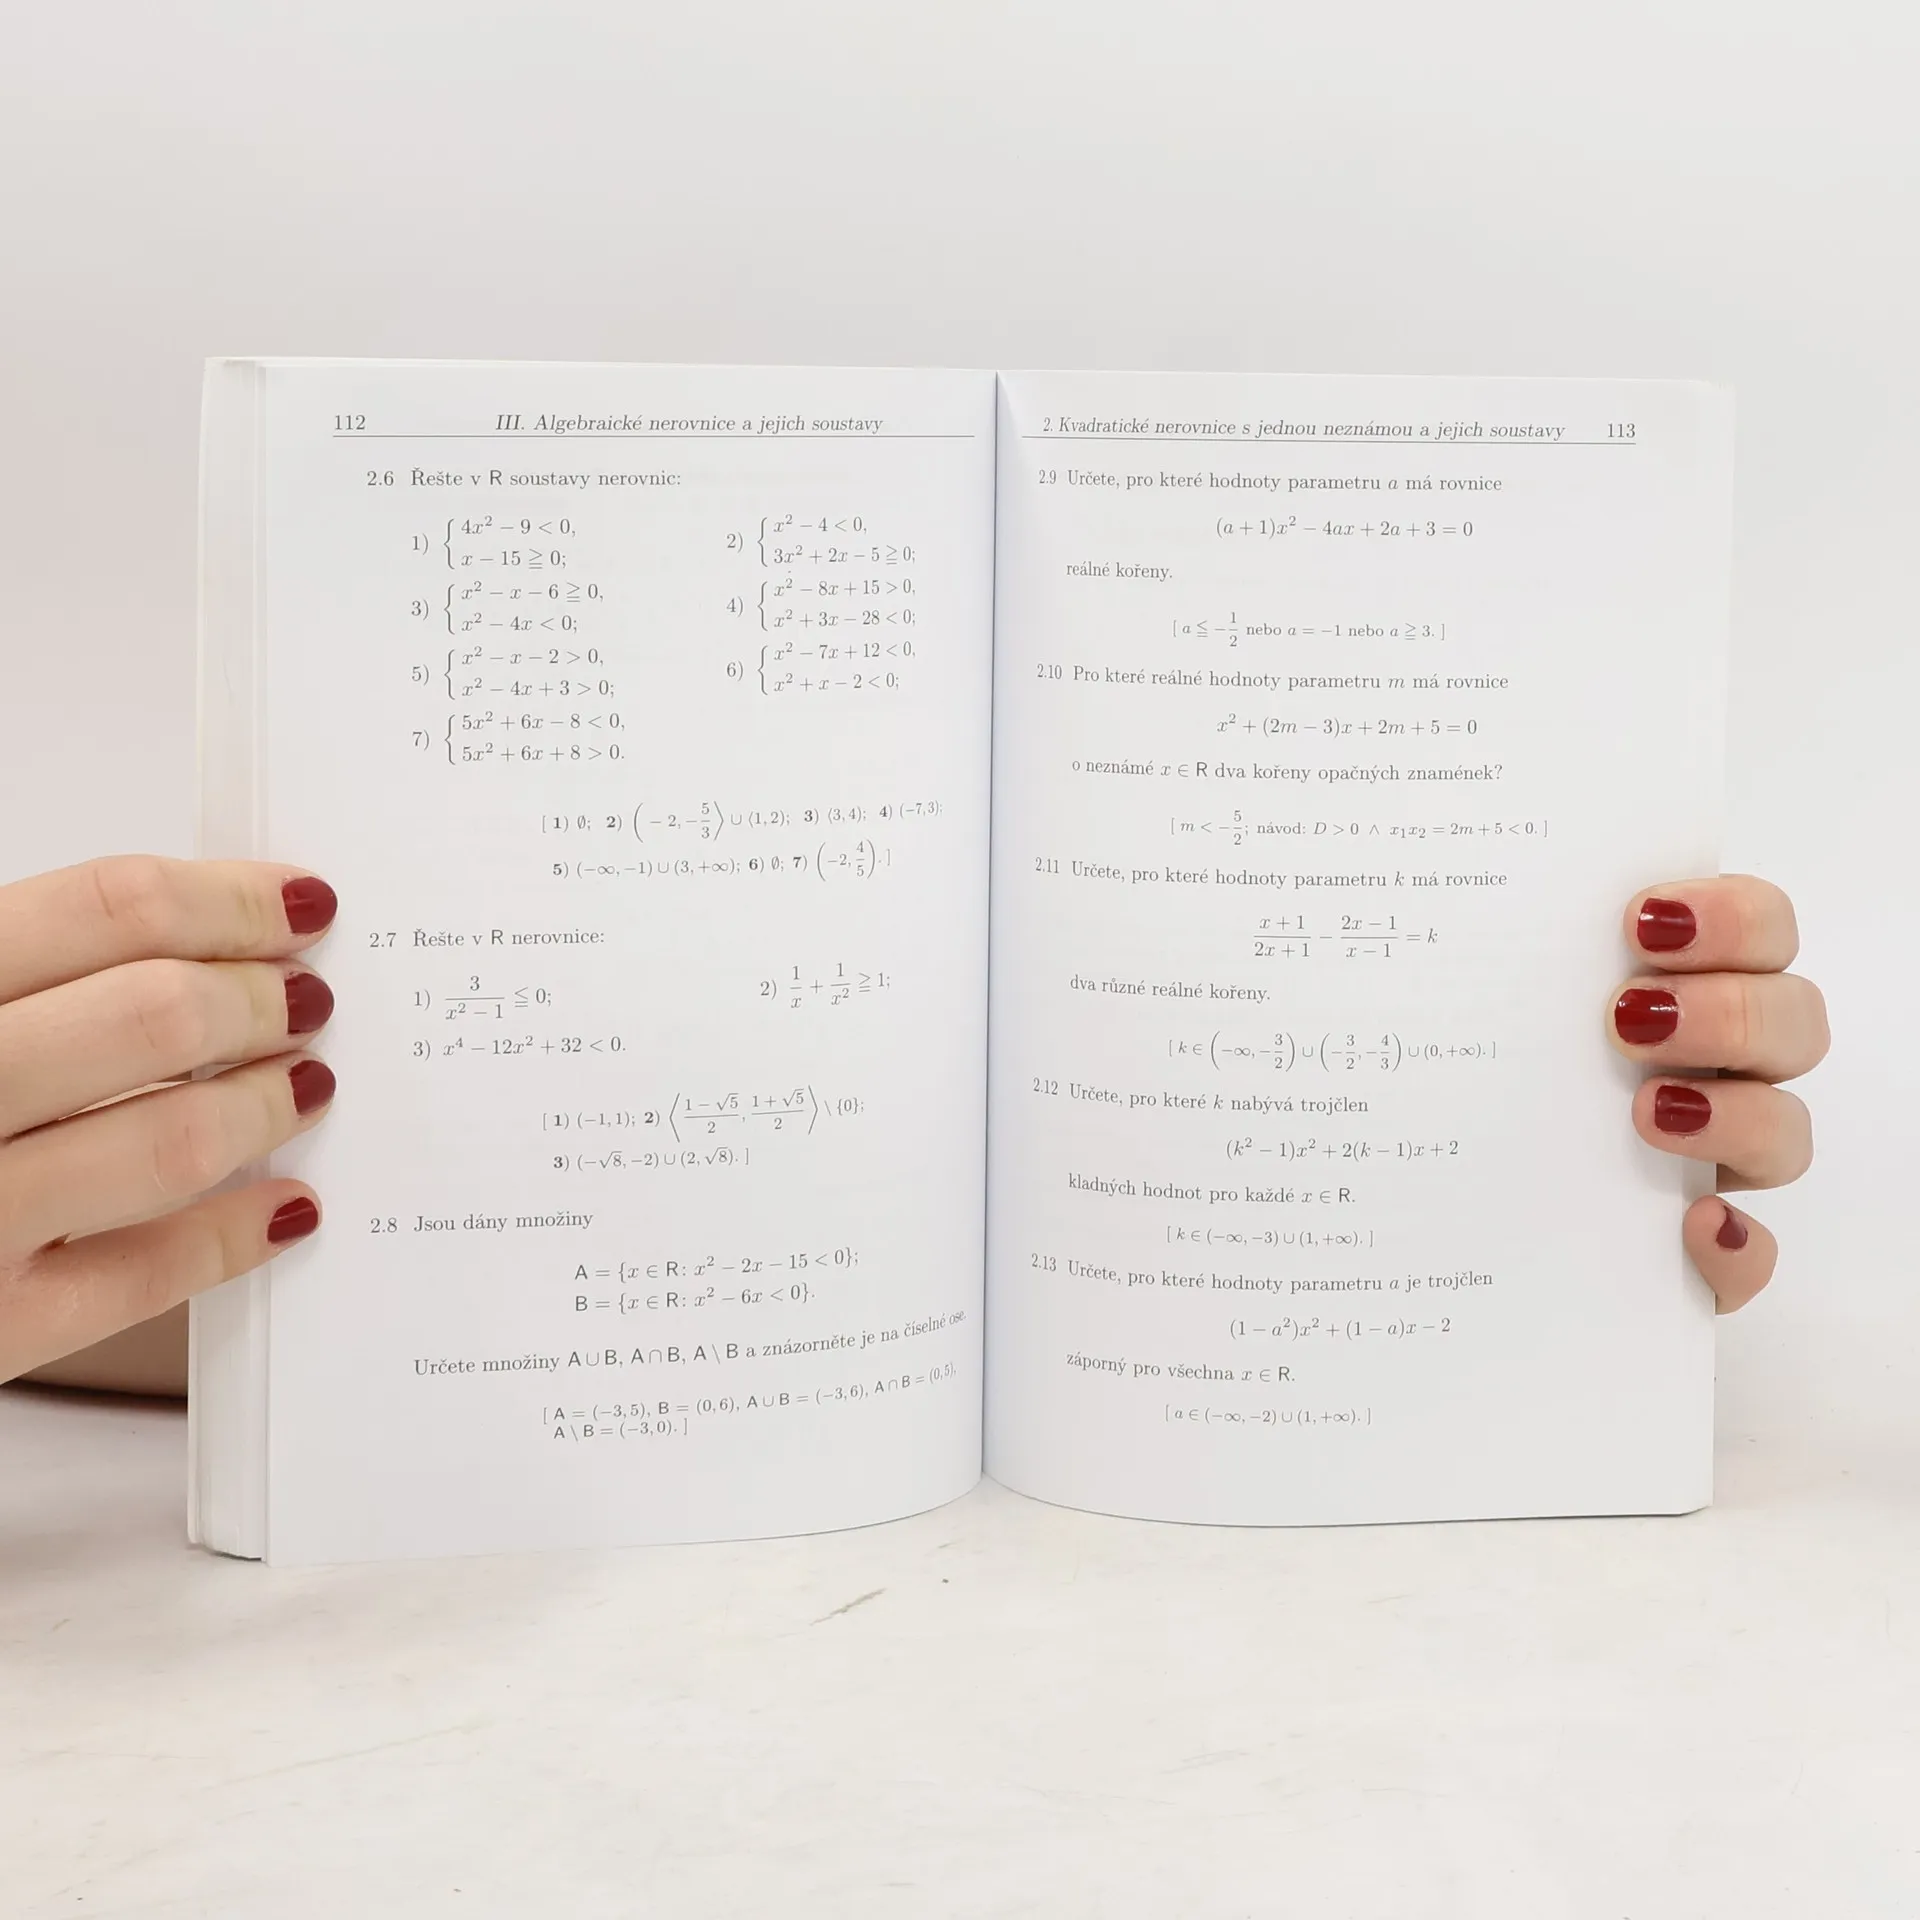 112 III. Algebraické nerovnice a jejich soustavy
2.6 Řešte v R soustavy nerovnic:
1) { 4x² − 9 < 0,
x − 15 ≧ 0;
2) { x² − 4 < 0,
3x² + 2x − 5 ≧ 0;
3) { x² − x − 6 ≧ 0,
x² − 4x < 0;
4) { x² − 8x + 15 > 0,
x² + 3x − 28 < 0;
5) { x² − x − 2 > 0,
x² − 4x + 3 > 0;
6) { x² − 7x + 12 < 0,
x² + x − 2 < 0;
7) { 5x² + 6x − 8 < 0,
5x² + 6x + 8 > 0.
[ 1) ∅; 2) (−2, −5/3⟩ ∪ ⟨1, 2); 3) ⟨3, 4); 4) (−7, 3);
5) (−∞, −1) ∪ (3, +∞); 6) ∅; 7) (−2, 4/5). ]
2.7 Řešte v R nerovnice:
1) 3/(x² − 1) ≦ 0; 2) 1/x + 1/x² ≧ 1;
3) x⁴ − 12x² + 32 < 0.
[ 1) (−1, 1); 2) ⟨(1 − √5)/2, (1 + √5)/2⟩ \ {0};
3) (−√8, −2) ∪ (2, √8). ]
2.8 Jsou dány množiny
A = {x ∈ R: x² − 2x − 15 < 0};
B = {x ∈ R: x² − 6x < 0}.
Určete množiny A ∪ B, A ∩ B, A \ B a znázorněte je na číselné ose.
[ A = (−3, 5), B = (0, 6), A ∪ B = (−3, 6), A ∩ B = (0, 5),
A \ B = (−3, 0). ]
2. Kvadratické nerovnice s jednou neznámou a jejich soustavy 113
2.9 Určete, pro které hodnoty parametru a má rovnice
(a + 1)x² − 4ax + 2a + 3 = 0
reálné kořeny.
[ a ≦ −1/2 nebo a = −1 nebo a ≧ 3. ]
2.10 Pro které reálné hodnoty parametru m má rovnice
x² + (2m − 3)x + 2m + 5 = 0
o neznámé x ∈ R dva kořeny opačných znamének?
[ m < −5/2; návod: D > 0 ∧ x₁x₂ = 2m + 5 < 0. ]
2.11 Určete, pro které hodnoty parametru k má rovnice
(x + 1)/(2x + 1) − (2x − 1)/(x − 1) = k
dva různé reálné kořeny.
[ k ∈ (−∞, −3/2) ∪ (−3/2, −4/3) ∪ (0, +∞). ]
2.12 Určete, pro které k nabývá trojčlen
(k² − 1)x² + 2(k − 1)x + 2
kladných hodnot pro každé x ∈ R.
[ k ∈ (−∞, −3) ∪ (1, +∞). ]
2.13 Určete, pro které hodnoty parametru a je trojčlen
(1 − a²)x² + (1 − a)x − 2
záporný pro všechna x ∈ R.
[ a ∈ (−∞, −2) ∪ (1, +∞). ]